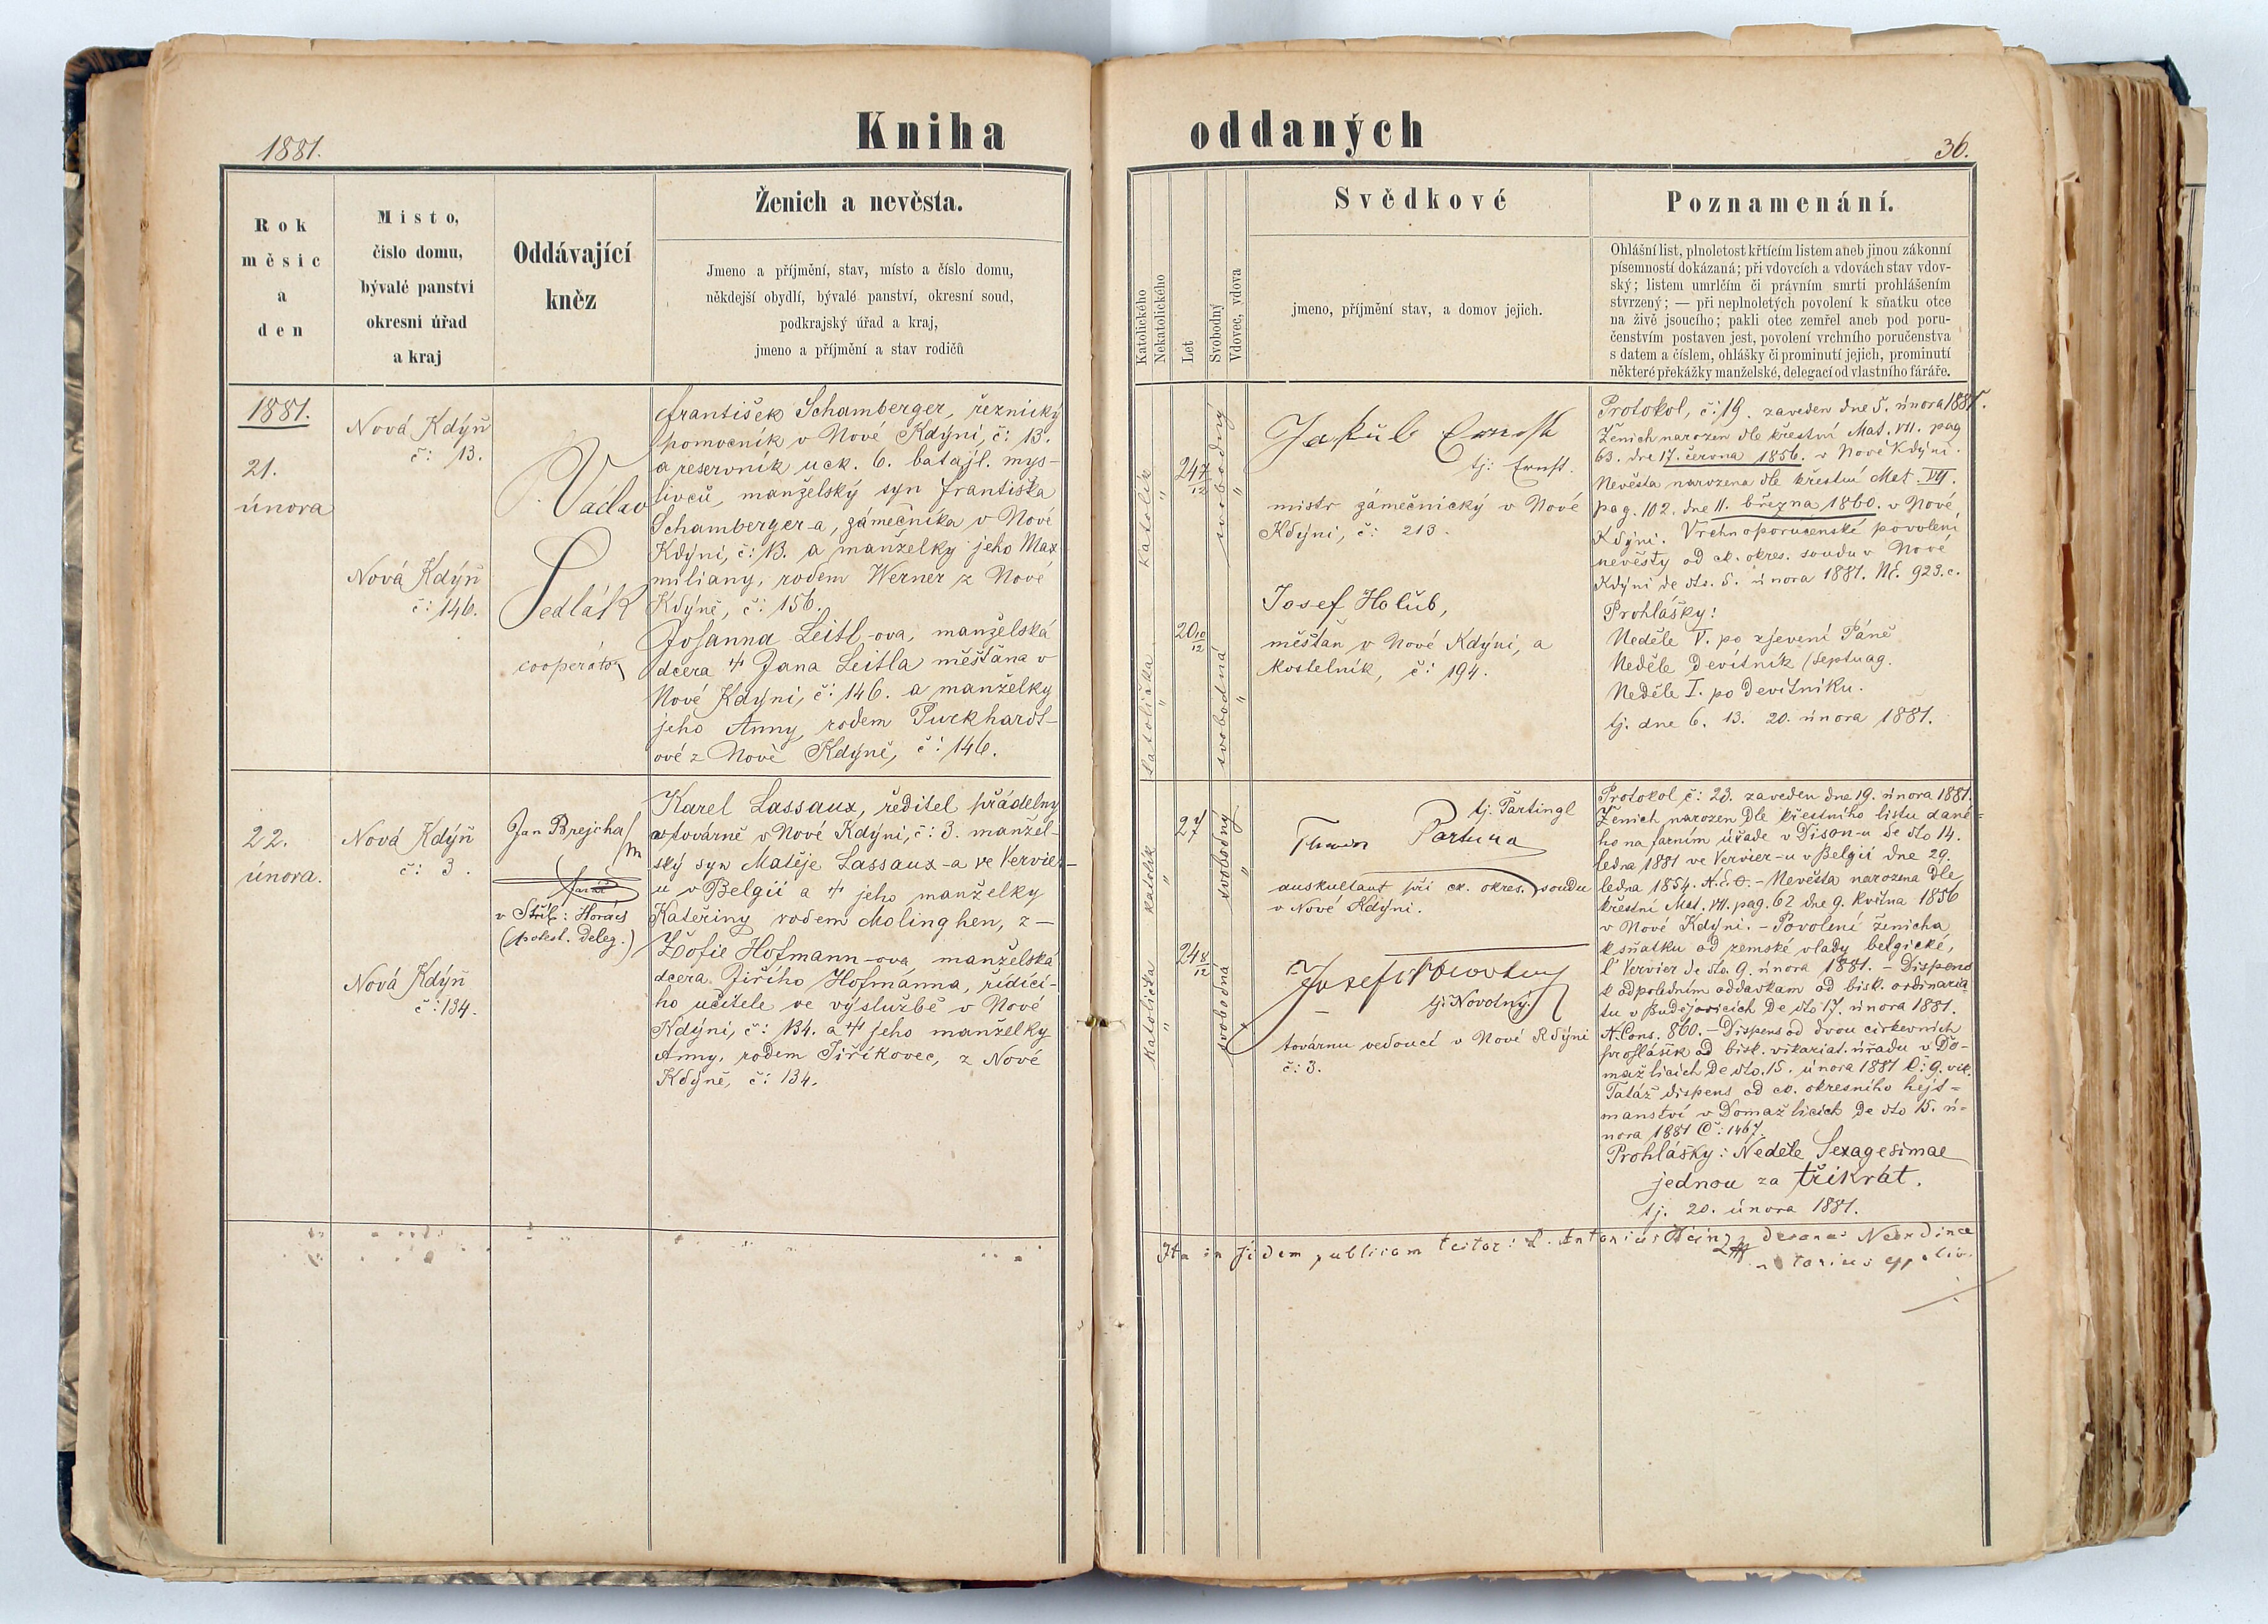 1881.
Kniha oddaných
36.
Rok
měsíc
a
den
Místo,
číslo domu,
bývalé panství
okresní úřad
a kraj
Oddávající
kněz
Ženich a nevěsta.
Jmeno a příjmění, stav, místo a číslo domu,
někdejší obydlí, bývalé panství, okresní soud,
podkrajský úřad a kraj,
jmeno a příjmění a stav rodičů
Katolického
Nekatolického
Let
Svobodný
Vdovec, vdova
Svědkové
jmeno, příjmění stav, a domov jejich.
Poznamenání.
Ohlášní list, plnoletost křtícím listem aneb jinou zákonní
písemností dokázaná; při vdovcích a vdovách stav vdov-
ský; listem umrlčím či právním smrti prohlášením
stvrzený; — při neplnoletých povolení k sňatku otce
na živě jsoucího; pakli otec zemřel aneb pod poru-
čenstvím postaven jest, povolení vrchního poručenstva
s datem a číslem, ohlášky či prominutí jejich, prominutí
některé překážky manželské, delegací od vlastního faráře.
1881.
21.
února
Nová Kdýň
č: 13.
Nová Kdýň
č: 146.
Václav
Sedlák
cooperátor
František Schamberger, řeznický
pomocník v Nové Kdýni, č: 13.
a reservník uck. 6. batajl. mys-
livců, manželský syn Františka
Schamberger-a, zámečníka v Nové
Kdýni, č: 13. a manželky jeho Max
miliany, rodem Werner z Nové
Kdýně, č: 156.
Johanna Leitl-ova, manželská
dcera † Jana Leitla měšťana v
Nové Kdýni, č: 146. a manželky
jeho Anny rodem Purkhardt-
ové z Nové Kdýně, č: 146.
katolík
"
24 7/12
svobodný
"
katolička
"
20 10/12
svobodná
"
Jakub Ernst
tj: Ernst.
mistr zámečnický v Nové
Kdýni, č: 213.
Josef Holub,
měšťan v Nové Kdýni, a
kostelník, č: 194.
Protokol, č: 19. zaveden dne 5. února 1881.
Ženich narozen dle křestní Mat. VII. pag
63. dne 17. června 1856. v Nové Kdýni.
Nevěsta narozena dle křestní Mat. VII.
pag. 102. dne 11. března 1860. v Nové
Kdýni. Vrchnoporučenské povolení
nevěsty od ck. okres. soudu v Nové
Kdýni de dto. 5. února 1881. Nč. 923. c.
Prohlášky:
Neděle V. po zjevení Páně
Neděle Devítník (Septuag.
Neděle I. po Devítníku.
tj. dne 6. 13. 20. února 1881.
22.
února.
Nová Kdýň
č: 3.
Nová Kdýň
č: 134.
Jan Brejcha
farář
(polest. deleg.)
Karel Lassaux, ředitel přádelny
v továrně v Nové Kdýni, č: 3. manžel-
ský syn Matěje Lassaux-a ve Vervier-
u v Belgii a † jeho manželky
Kateřiny rodem Molinghen, z —
Žofie Hofmann-ova manželská
dcera Jiřího Hofmanna, řídící-
ho učitele ve výslužbě v Nové
Kdýni, č: 134. a † jeho manželky
Anny, rodem Jiříkovec, z Nové
Kdýně, č: 134.
katolík
"
27
svobodný
"
katolička
"
24 8/12
svobodná
"
tj. Partingl
auskultant při ck. okres. soudu
v Nové Kdýni.
Josef Novotný
tj: Novotný.
továrnu vedoucí v Nové Kdýni
č: 3.
Protokol č: 23. zaveden dne 19. února 1881.
Ženich narozen dle křestního listu dané-
ho na farním úřadě v Dison-u de dto 14.
ledna 1881 ve Vervier-u v Belgii dne 29.
ledna 1854. – Nevěsta narozena dle
křestní Mat. VII. pag. 62 dne 9. května 1856
v Nové Kdýni. – Povolení ženicha
k sňatku od zemské vlády belgické,
l' Vervier de dto. 9. února 1881. – Dispens
k odpoledním oddavkám od bisk. ordinaria-
tu v Budějovicích de dto 17. února 1881.
N. Cons. 860. – Dispens od dvou církevních
prohlášek od bisk. vikariat. úřadu v Do-
mažlicích de dto. 15. února 1881 Č: 9. vik.
Tatáž dispens od ck. okresního hejt-
manství v Domažlicích de dto 15. ú-
nora 1881 Č: 1467.
Prohlášky: Neděle Sexagesimae
jednou za třikrát.
tj. 20. února 1881.
Ita in fidem publicam testor: